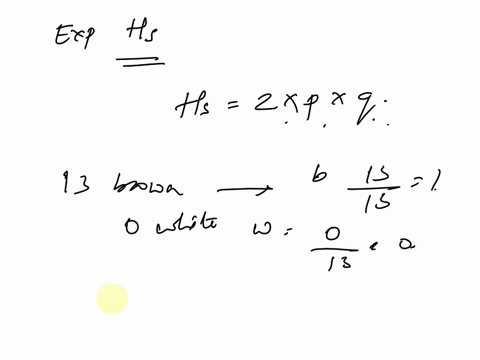 Exp Hs
Hs = 2 × p × q
13 brown → b 13/13 = 1
0 white w = 0/13 = 0